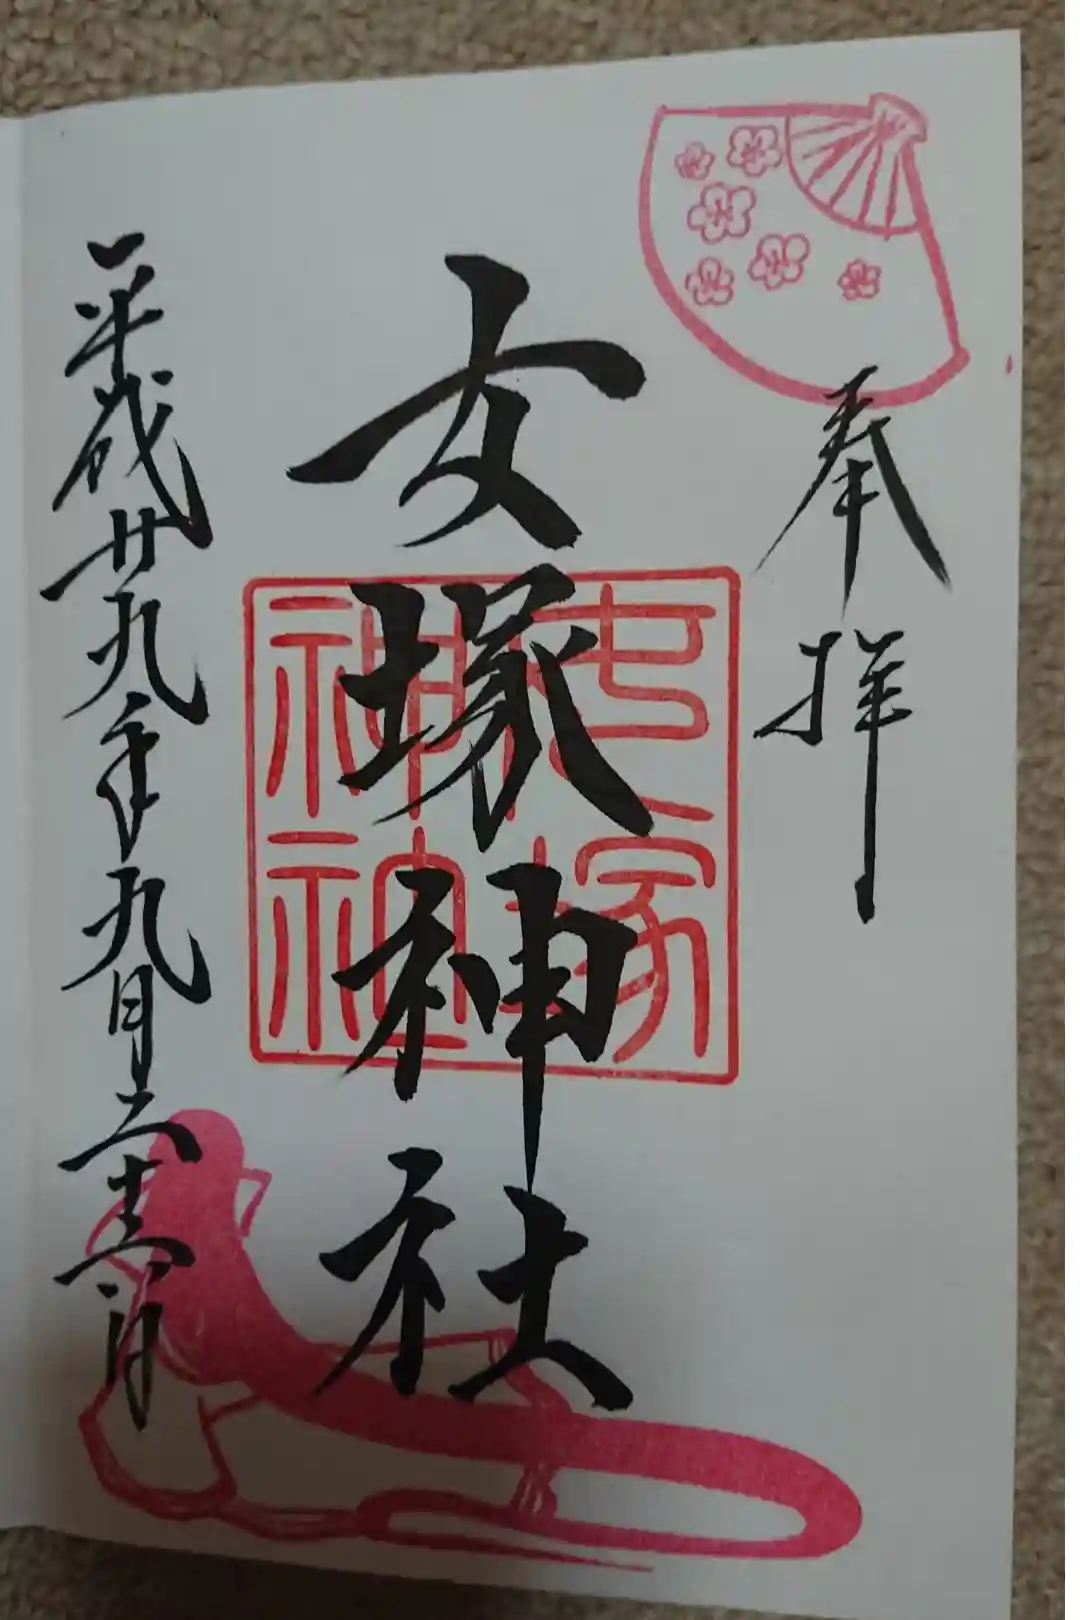 奉拝
女塚神社
女塚
神社
平成廿九年九月二十六日